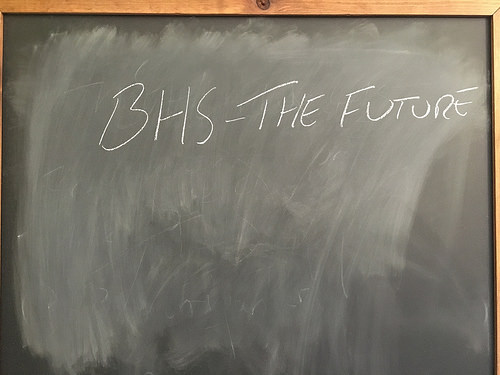 BHS - THE FUTURE